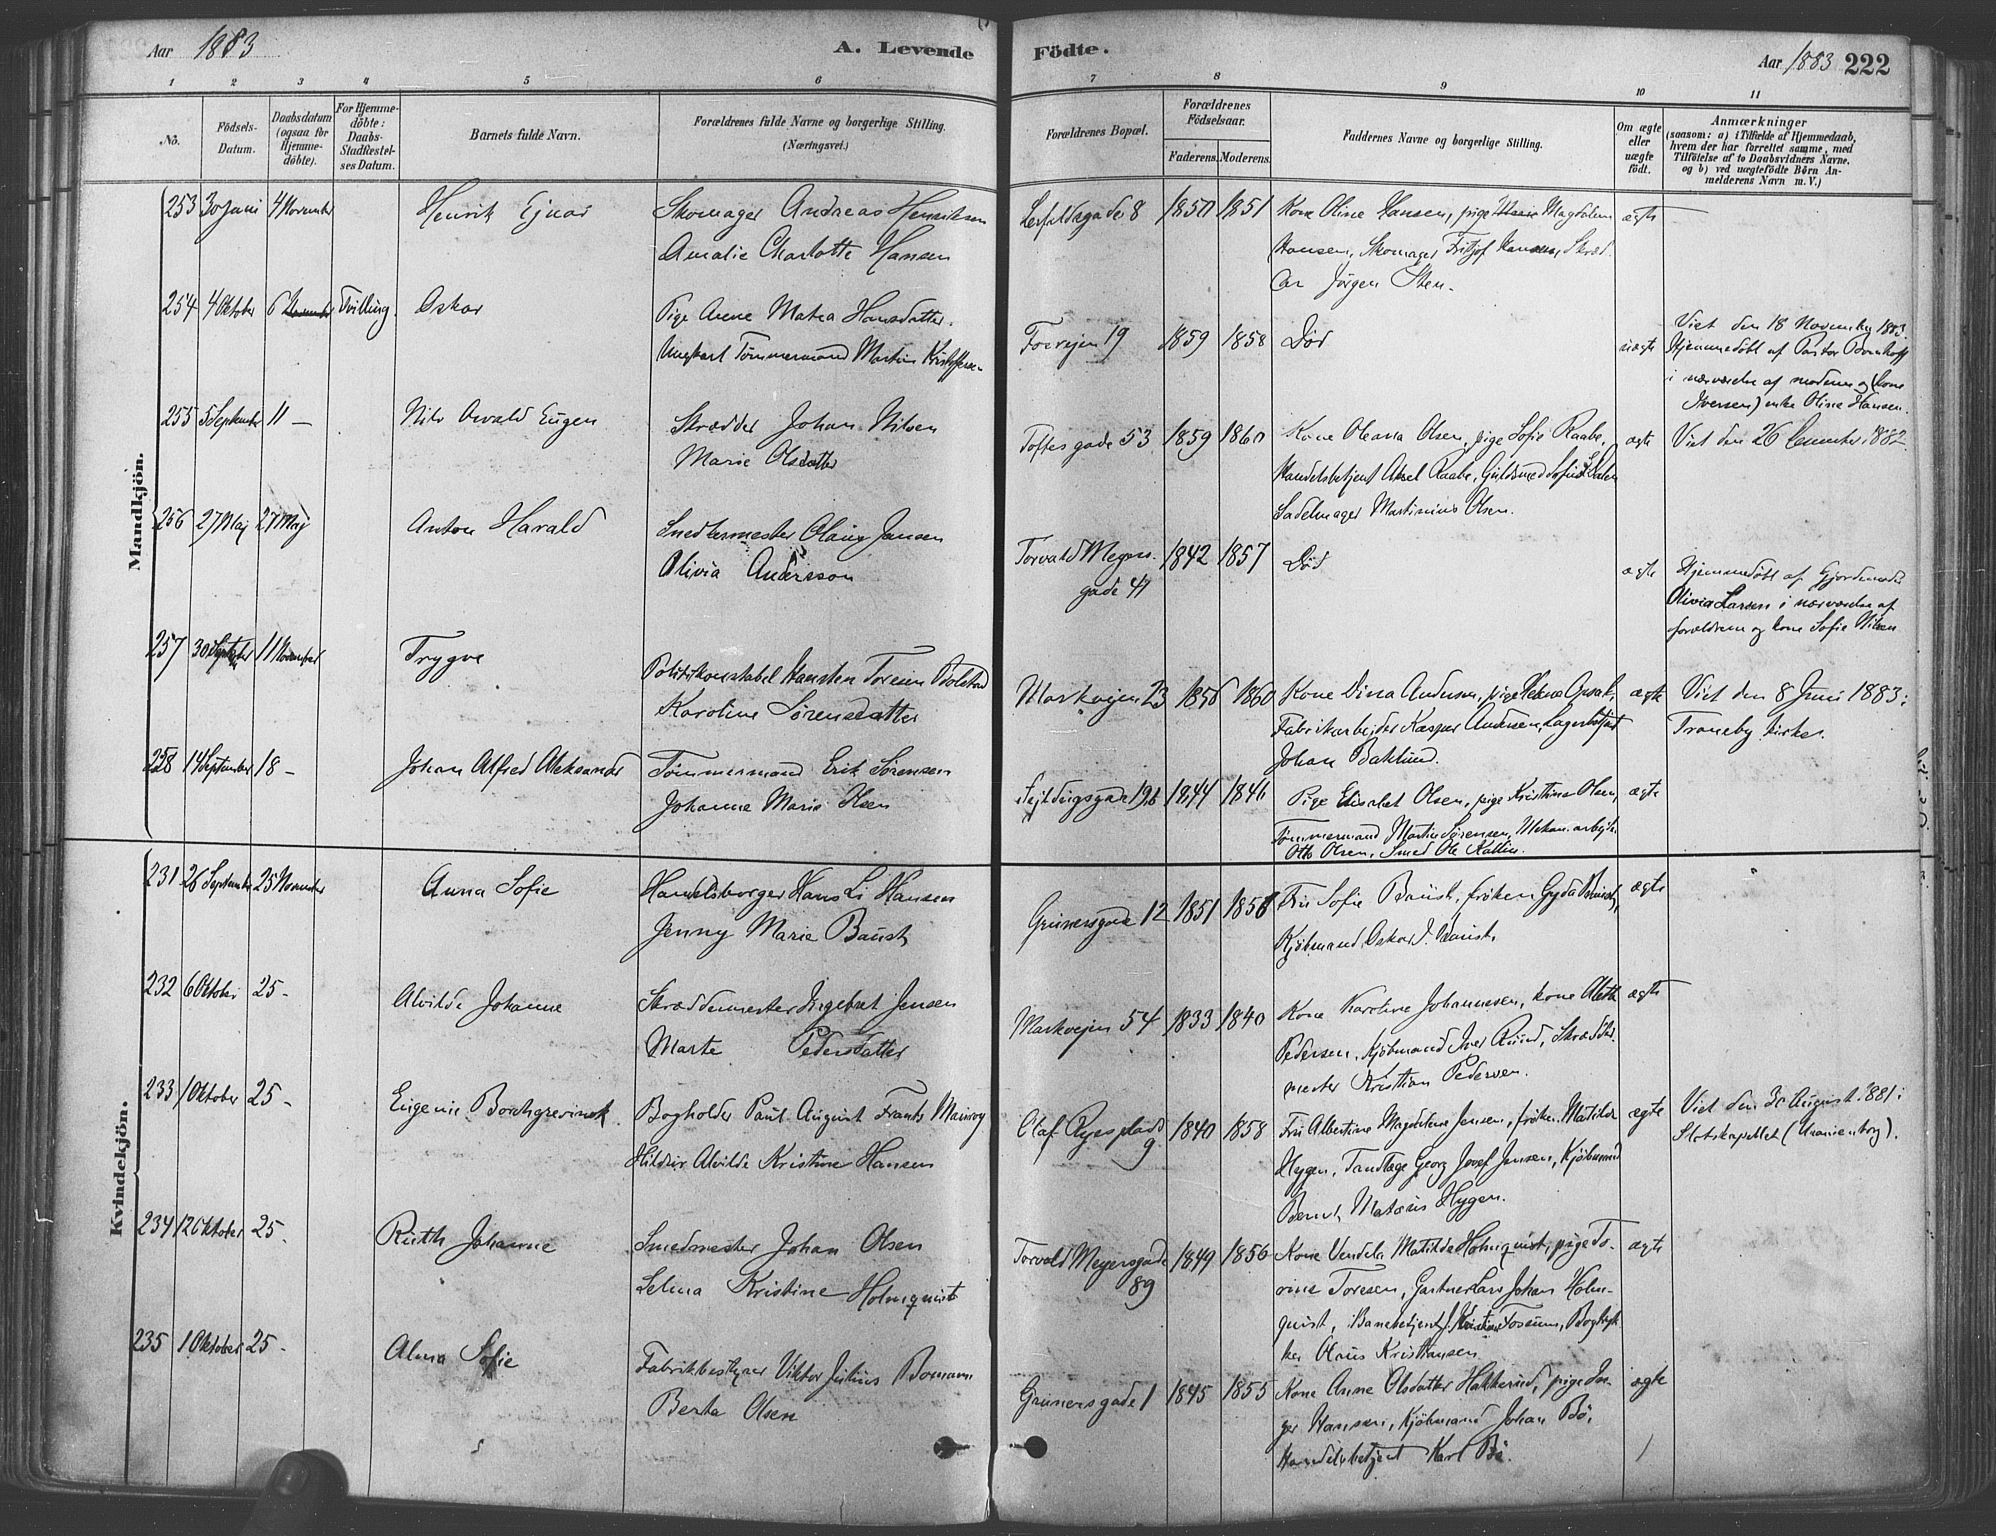 Aar 1883 A. Levende Födte. Aar 1883 222
1 2 3 4 5 6 7 8 9 10 11
No.
Födsels-Datum.
Daabsdatum (ogsaa for Hjemme-döbte).
For Hjemme-döbte: Daabs-Stadfæstel-ses Datum.
Barnets fulde Navn.
Forældrenes fulde Navne og borgerlige Stilling. (Næringsvei.)
Forældrenes Bopæl.
Forældrenes Födselsaar.
Faderens. Moderens.
Faddernes Navne og borgerlige Stilling.
Om ægte eller uægte födt.
Anmærkninger
(saasom: a) i Tilfælde af Hjemmedaab, hvem der har forrettet samme, med Tilföielse af to Daabsvidners Navne, og b) ved uægtefödte Börn An-melderens Navn m. V.)
Mandkjön.
253 30 Juni 4 November Henrik Ejnar Skomager Andreas Henriksen
Amalie Charlotte Hansen
8 1850 1851 Kone Oline Hansen, pige Magdalena ægte
Hansen, Skomager Fritjof Hansen, Skræd
Jørgen Sten.
254 4 Oktober 6 Tvilling. Oskar Pige Anne Matea Hansdatter.
Ungkarl Tømmermand Martin Kristoffersen
Fossvejen 19 1859 1858 Død uægte Viet den 18 November 1883.
Hjemmedøbt af Pastor
i nærværelse af moderen og (kone
Iversen) enke Oline Hansen.
255 5 September 11 – Nils Osvald Eugen Skrædder Johan Nilsen
Marie Olsdatter
Toftesgade 53 1859 1860 Kone Oleana Olsen, pige Sofie Raabe, ægte Viet den 26 1882.
Handelsbetjent Aksel Raabe, Guldsmed
Sadelmager Martinius Olsen.
256 27 Maj 27 Maj Anton Harald Snedkermester Olaus Jansen
Olivia Andersson
Torvald Meyers-
gade 41 1842 1857 Død ægte Hjemmedøbt af Gjordemoder
Olivia Larsen i nærværelse af
forældrene og kone Sofie Nilsen
257 30 September 11 November Trygve Politikonstabel Hansten Bolstad
Karoline Sørensdatter
Markvejen 23 1856 1860 Kone Dina Andersen, pige ægte Viet den 8 Juni 1883 i
Fabrikarbejder Kasper Andersen, Lagerbetjent Traneby kirke.
Johan Baklund.
258 14 September 18 – Johan Alfred Aleksander Tømmermand Erik Sørensen
Johanne Marie Olsen
1844 1846 Pige Elisabet Olsen, pige Kristine Olsen, ægte
Tømmermand Martin Sørensen, Mekan. arbejd.
Otto Olsen, Smed Ole
Kvindekjön.
231 26 September 25 November Anna Sofie Handelsborger Hans Li Hansen
Jenny Marie Baust
Grünersgade 12 1851 Fru Sofie Baust, frøken Gyda Baust, ægte
Kjøbmand Oskar J. Baust.
232 6 Oktober 25 – Alvilde Johanne Skræddermester Ingebret Jensen
Marte Pedersdatter
Markvejen 54 1833 1840 Kone Karoline Johannesen, kone Alette ægte
Pedersen, Kjøbmand Iver Ruud, Skrædder
mester Kristian Pedersen.
233 1 Oktober 25 – Eugenie Borchgrevink. Bogholder Paul August Frants
Alvilde Kristine Hansen
Olaf Ryes plads 9 1840 1858 Fru Albertine Magdalene Jensen, frøken Matilde ægte Viet den 30 August 1881 i
Hygen, Tandlæge Georg Josef Jensen, Kjøbmand Slotskapellet (Uranienborg).
Bernt Matæus Hygen.
234 12 Oktober 25 – Ruth Johanne Smedmester Johan Olsen
Selma Kristine Holmquist
Torvald Meyersgade
89 1849 1856 Kone Vendela Matilde Holmquist, pige To- ægte
rine Toresen, Gartner Lars Johan Holm-
quist, Banebetjent Fossum, Bogtryk-
ker Olaus Kristiansen.
235 1 Oktober 25 – Alma Sofie Fabrikbestyrer Viktor Julius Bomann
Berta Olsen
Grünersgade 1 1845 1855 Kone Anne Olsdatter Hakkerud, pige In- ægte
ger Hansen, Kjøbmand Johan Bø,
Handelsbetjent Karl Bø.